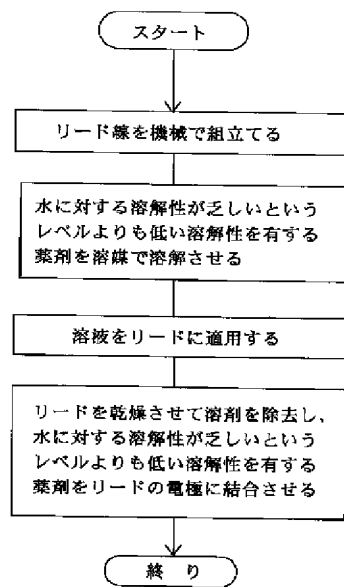 スタート
リード線を機械で組立てる
水に対する溶解性が乏しいという
レベルよりも低い溶解性を有する
薬剤を溶媒で溶解させる
溶液をリードに適用する
リードを乾燥させて溶剤を除去し、
水に対する溶解性が乏しいという
レベルよりも低い溶解性を有する
薬剤をリードの電極に結合させる
終 り